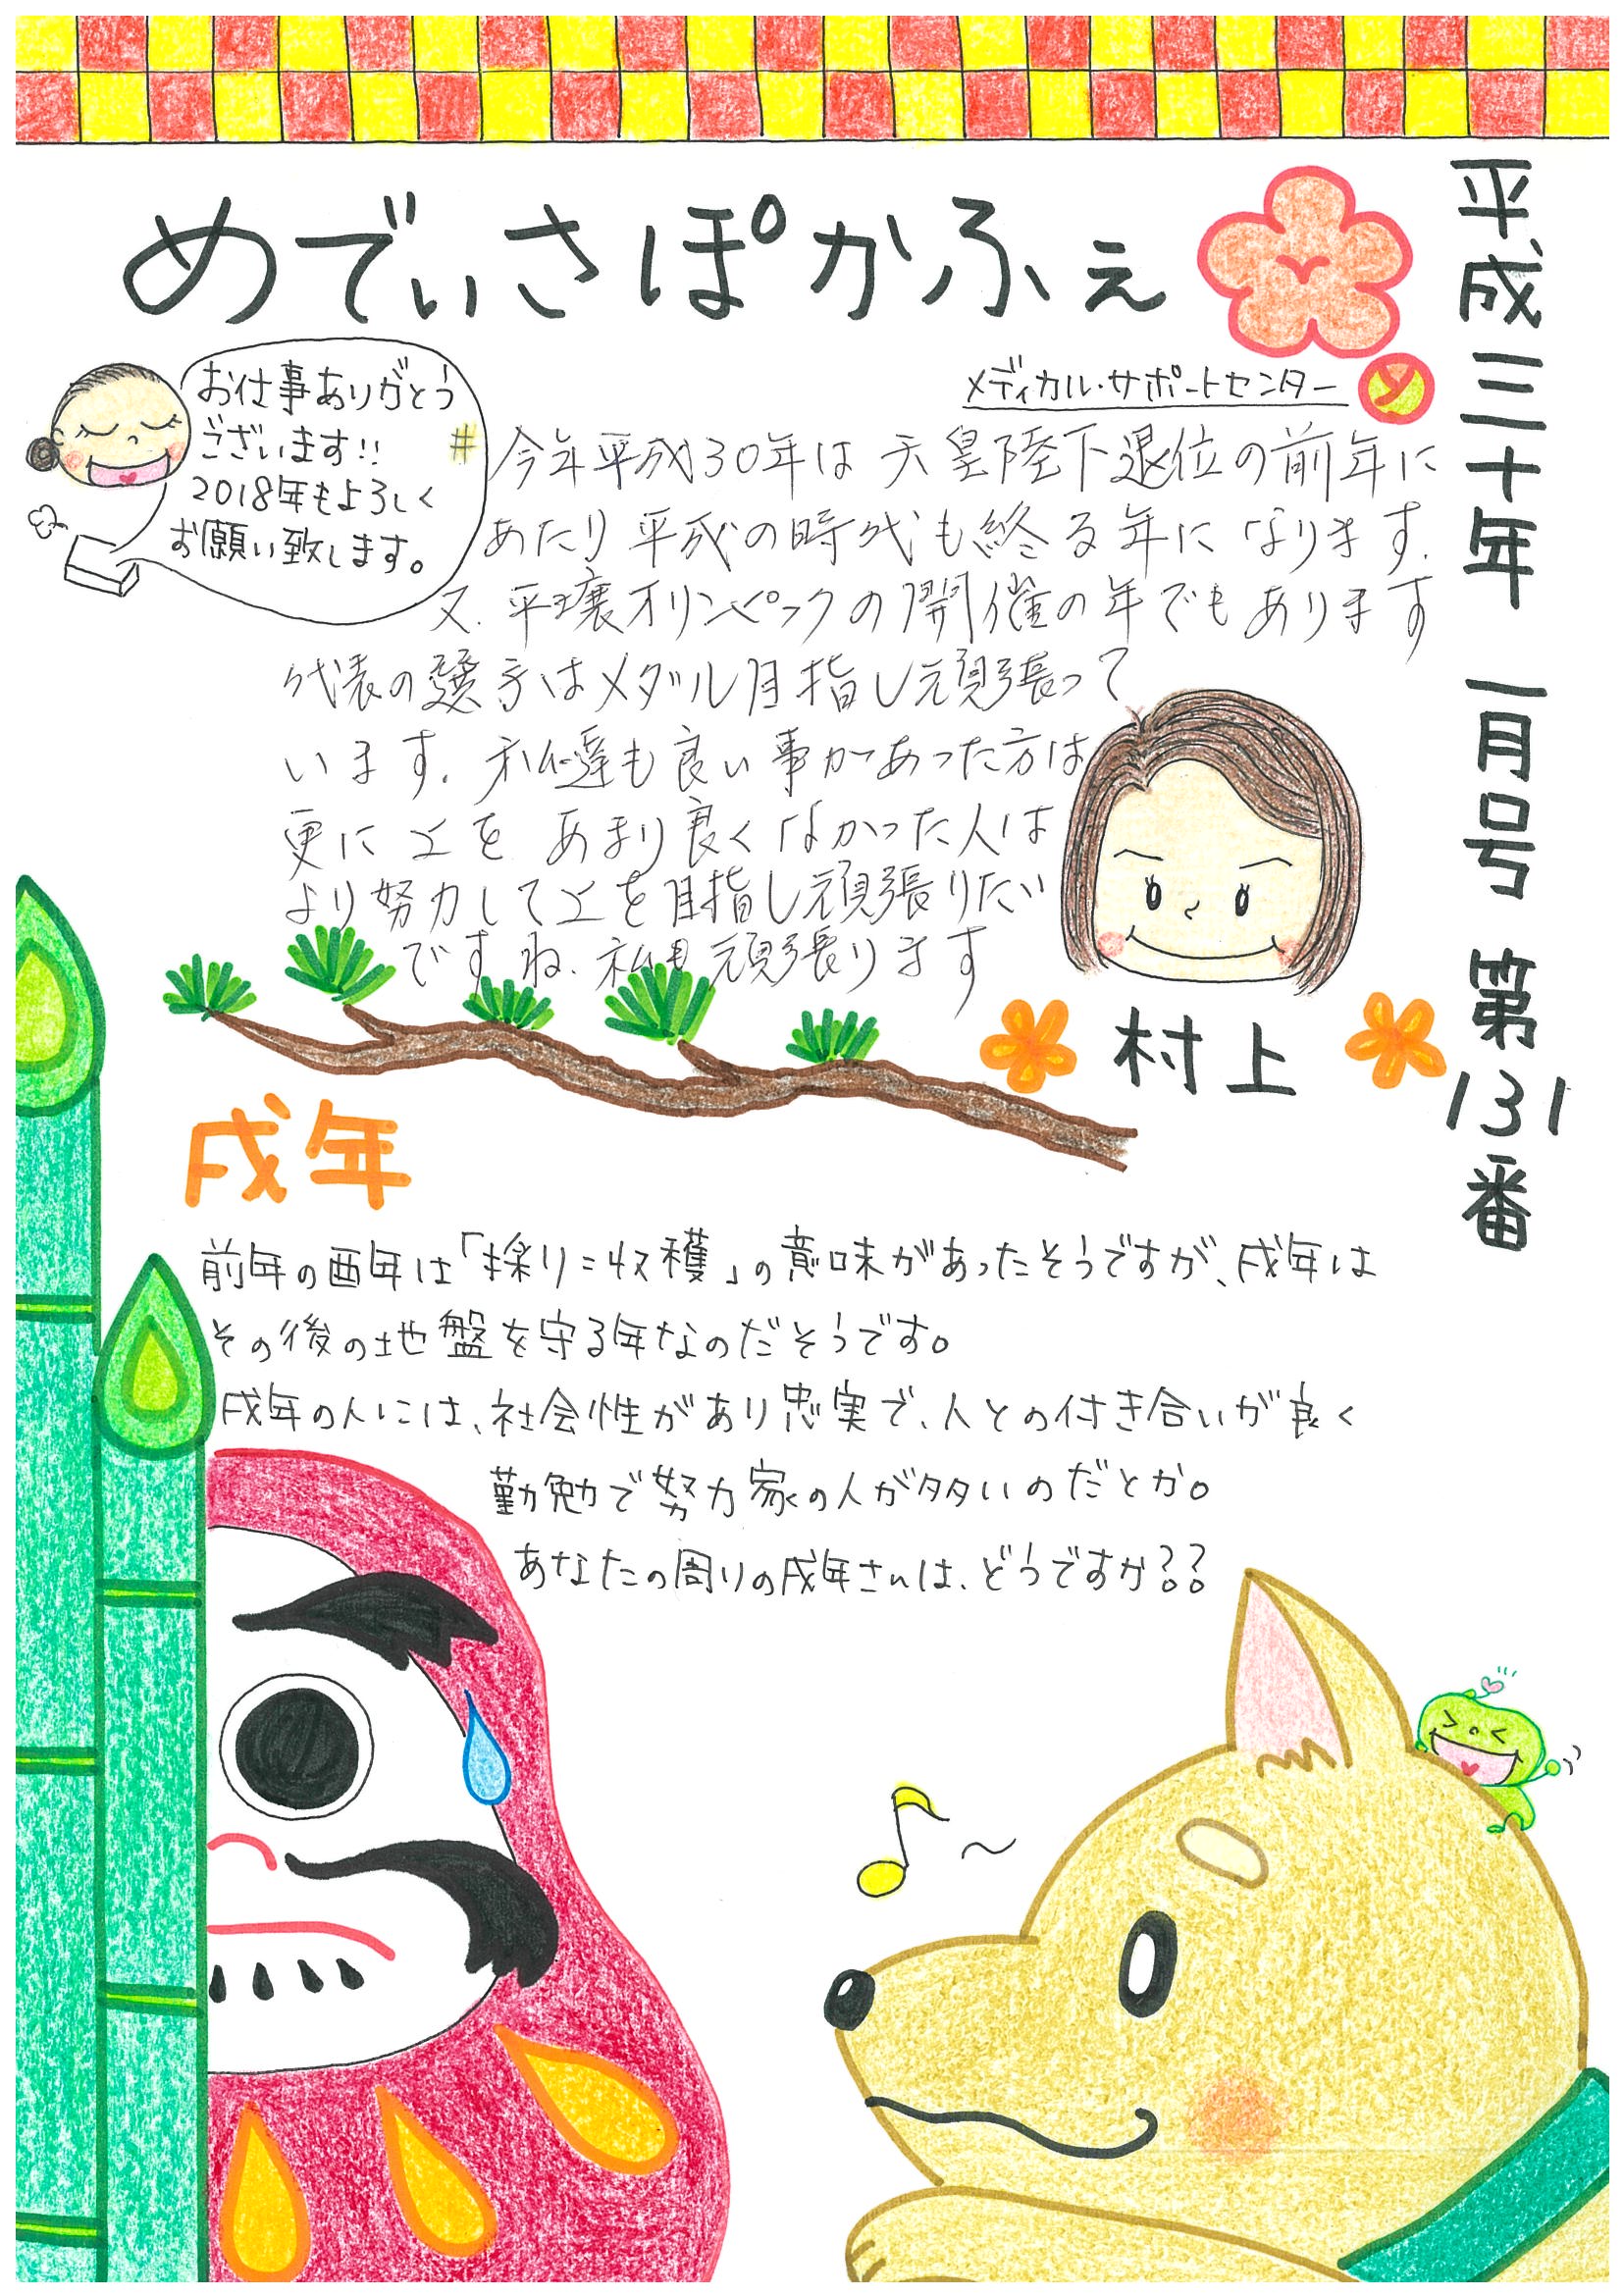 めでぃさぽかふぇ
平成三十年 一月号 第131番
メディカル・サポートセンター
お仕事ありがとう
ございます!!
2018年もよろしく
お願い致します。
今年平成30年は天皇陛下退位の前年に
あたり平成の時代も終る年になります.
又.平壌オリンピックの開催の年でもあります
代表の選手はメダル目指し頑張って
います.私達も良い事があった方は
更に上を あまり良くなかった人は
より努力して上を目指し頑張りたい
ですね.私も頑張ります
村上
戌年
前年の酉年は「採り=収穫」の意味があったそうですが、戌年は
その後の地盤を守る年なのだそうです。
戌年の人には、社会性があり忠実で、人との付き合いが良く
勤勉で努力家の人が多いのだとか。
あなたの周りの戌年さんは、どうですか??